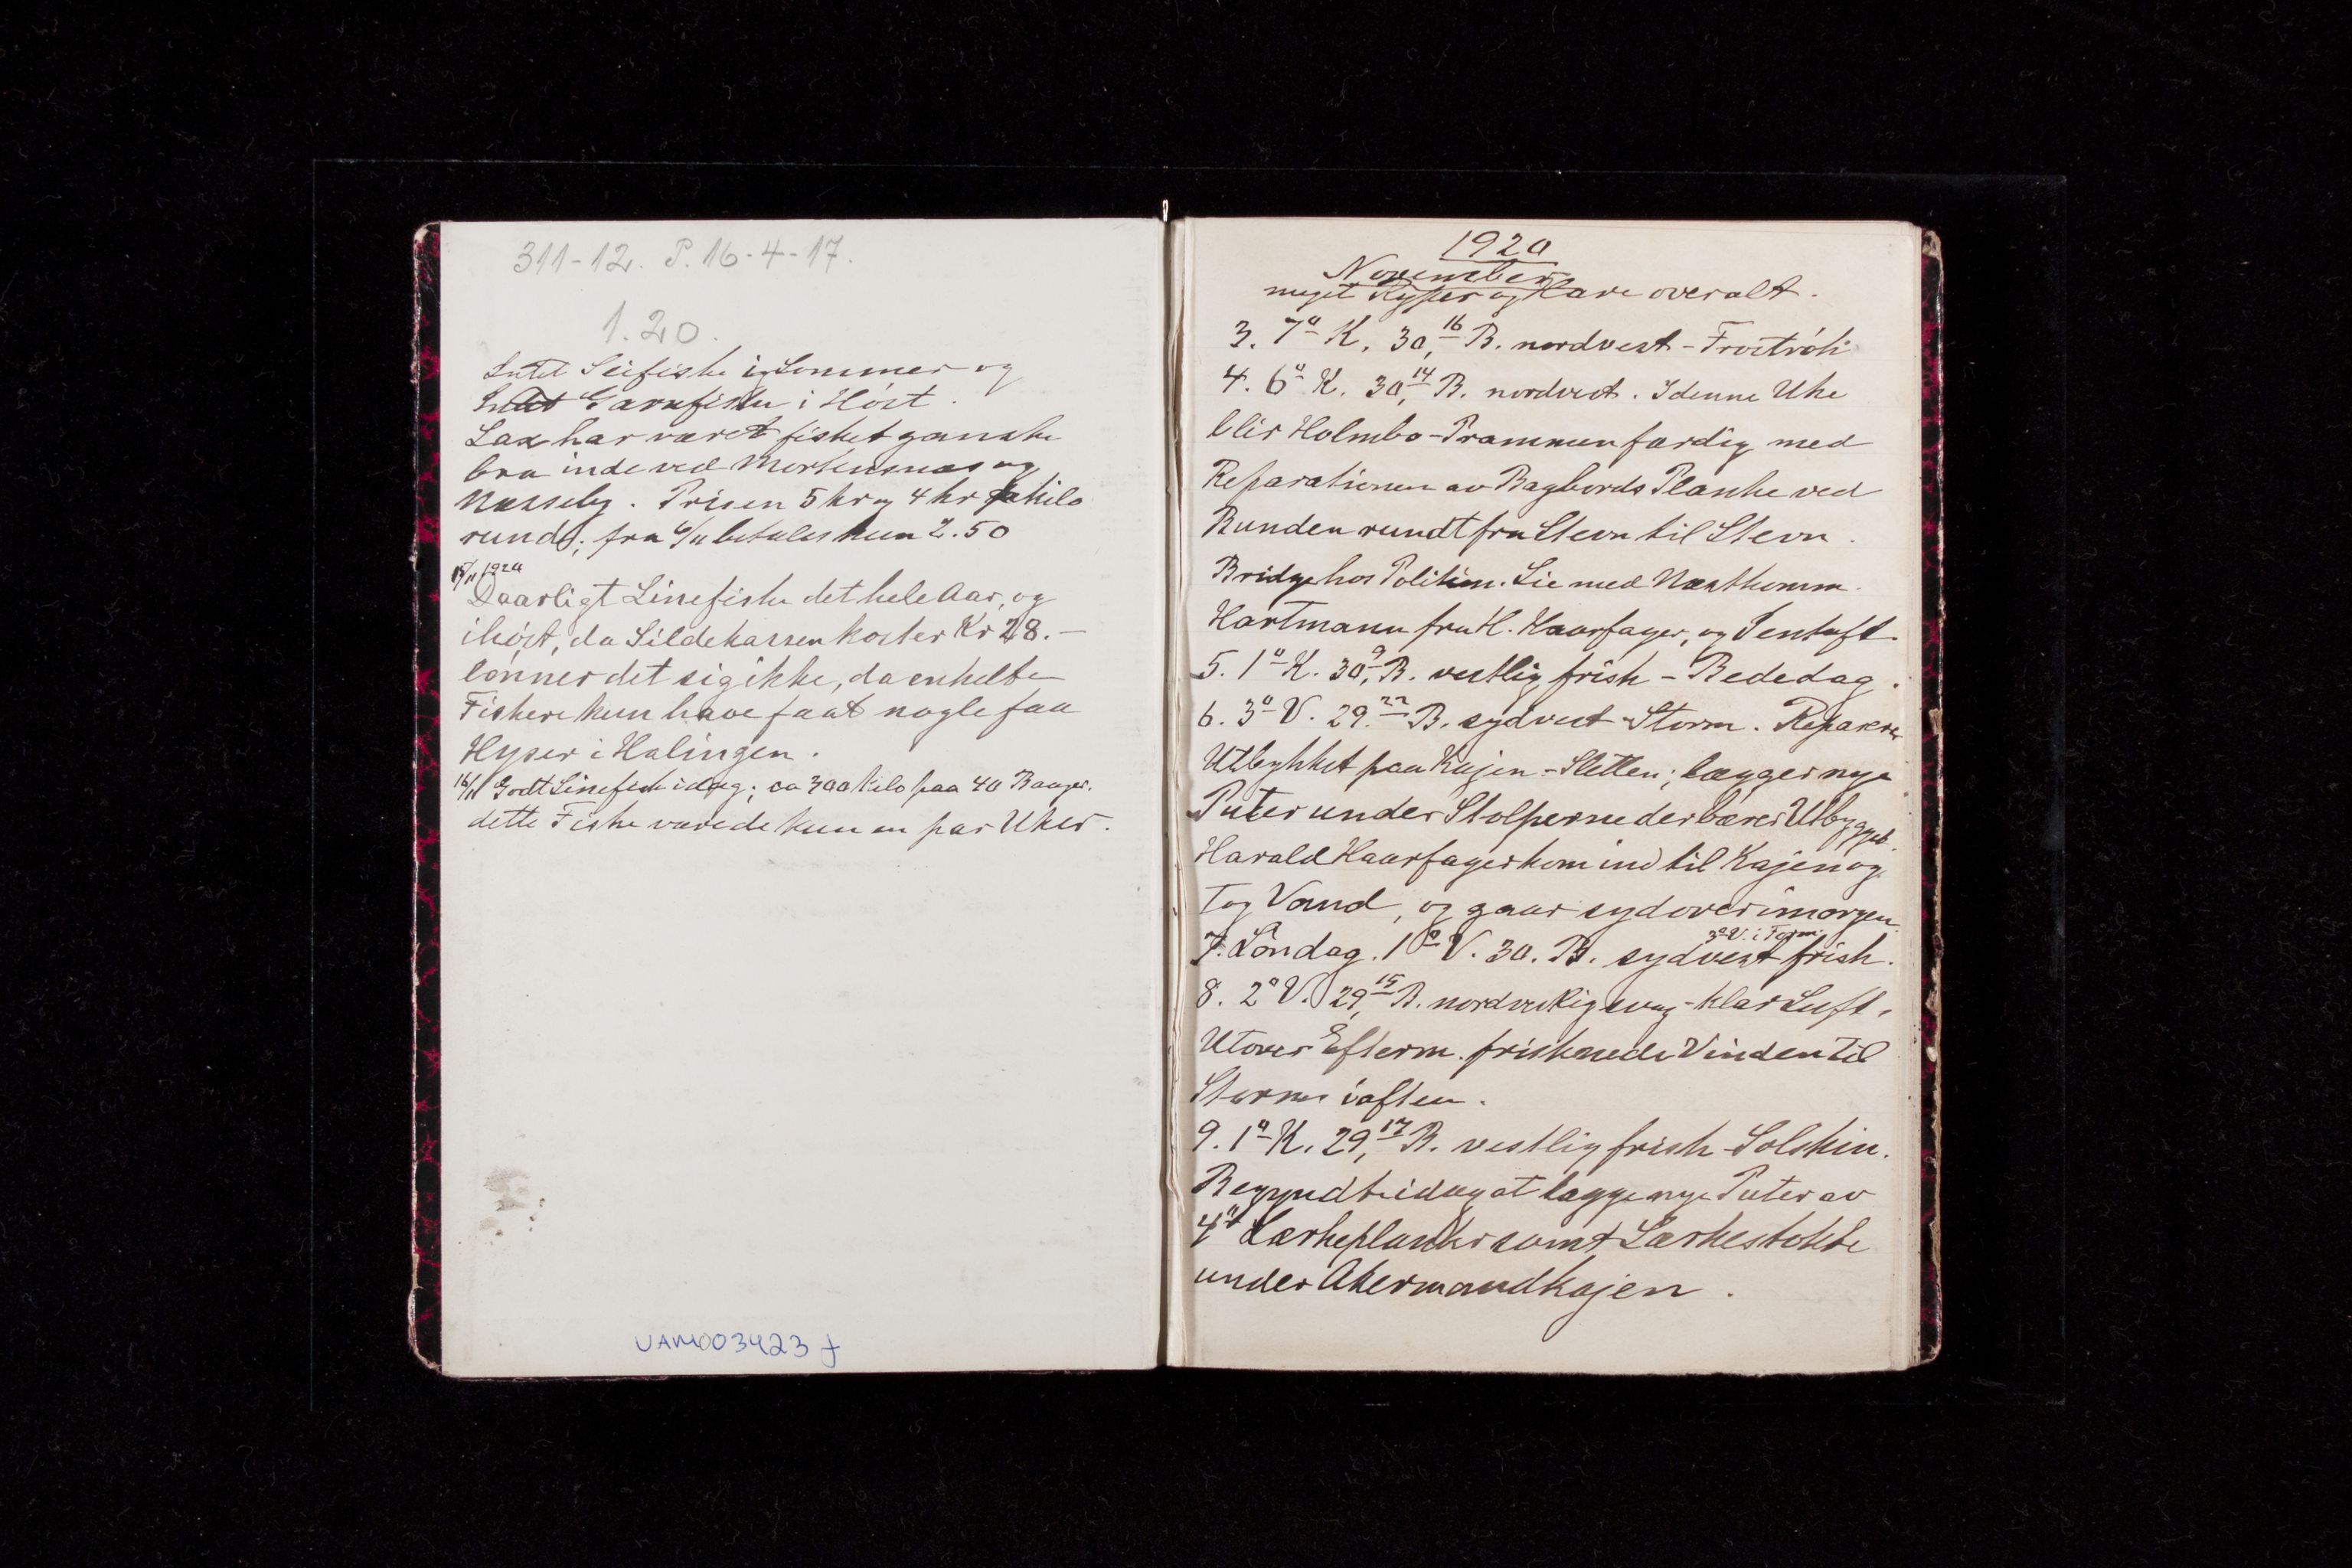 311-12. P. 16-4-17.
1.20.
Intet Seifiske i Sommer og
Intet Garnfiske i Høst.
Lax har været fisket ganske
bra inde ved Mortensnæs og
Næsseby. Prisen 5 kr og 4 kr pa kilo
rund; fra 6/11 betales kun 2.50
15/11 1920
Daarligt Linefiske det hele Aar, og
ihøst, da Sildekassen koster Kr 28.-
lønner det sig ikke, da enkelte
Fiskere kun have faat nogle faa
Hyser i Halingen.
16/11 Godt Linefisk idag; ca 300 kilo paa 40 Banger.
dette Fiske varede kun en par Uker.
UAM003423 f
1920
November
meget Ryper og Hare overalt.
3. 7° K. 30,16 B. nordvest - Froströk
4. 6° K. 30,14 B. nordvest. I denne Uke
blir Holmbo-Prammen færdig med
Reparationen av Bagbords Planke ved
Bunden rundt fra Stevn til Stevn.
Bridge hos Politim. Lie med Næstkomm.
Hartmann fra H. Haarfager, og Tentoft.
5. 1° K. 30,9 B. vestlig frisk - Bededag.
6. 3° V. 29.22 B. sydvest Storm. Reparerer
Utbygket paa Kajen - Sletten; lægger nye
Puter under Stolperne der bærer Utbygget.
Harald Haarfager kom ind til Kajen og
tog Vand, og gaar sydover imorgen.
7. Søndag. 1° V. 30. B. sydvest frisk.
3° V. i Form.
8. 2° V. 29,15 B. nordvestlig svag - klar Luft.
Utover Efterm. frisknede Vinden til
Storm iaften.
9. 1° K. 29,17 B. vestlig frisk - Solskin.
Begyndte idag at lægge nye Puter av
4" Lærkeplanker samt Lærkestokke
under Akermandkajen.